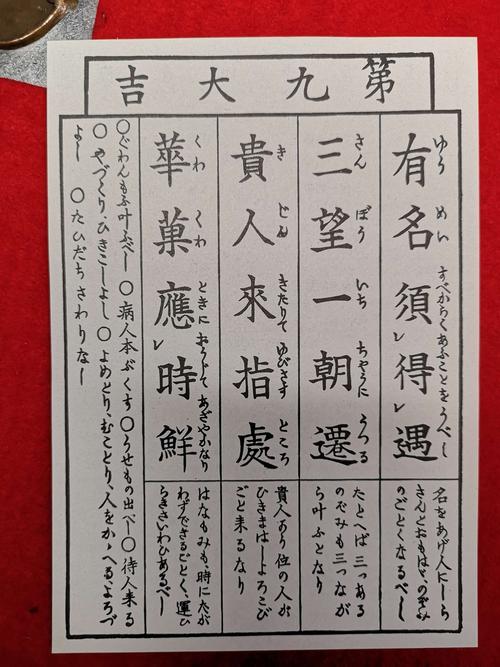 第九大吉
有名須得遇
ゆう めい すべからくあふことをうべし
名をあげ人にしら
きんとおもはゞ、のぞみ
のごとくなるべし
三望一朝遷
さん ぼう いち ちやうに うつる
たとへば三つある
のぞみも三つなが
ら叶ふとなり
貴人來指處
き じん きたりて ゆびさす ところ
貴人あり位の人が
ひきまはしよろこび
ごと来るなり
華菓應時鮮
くわ くわ ときに おうじて あざやかなり
はなもみも時にたが
わずできるごとく、運ひ
らきさいわひあるべし
○ぐわんもふ叶ふべし ○病人本ぶくす ○うせもの出べし ○待人来る
○やづくり、ひきこしよし ○よめとり、むことり、人をかゝへる、よろづ
よし ○たひだちさわりなし